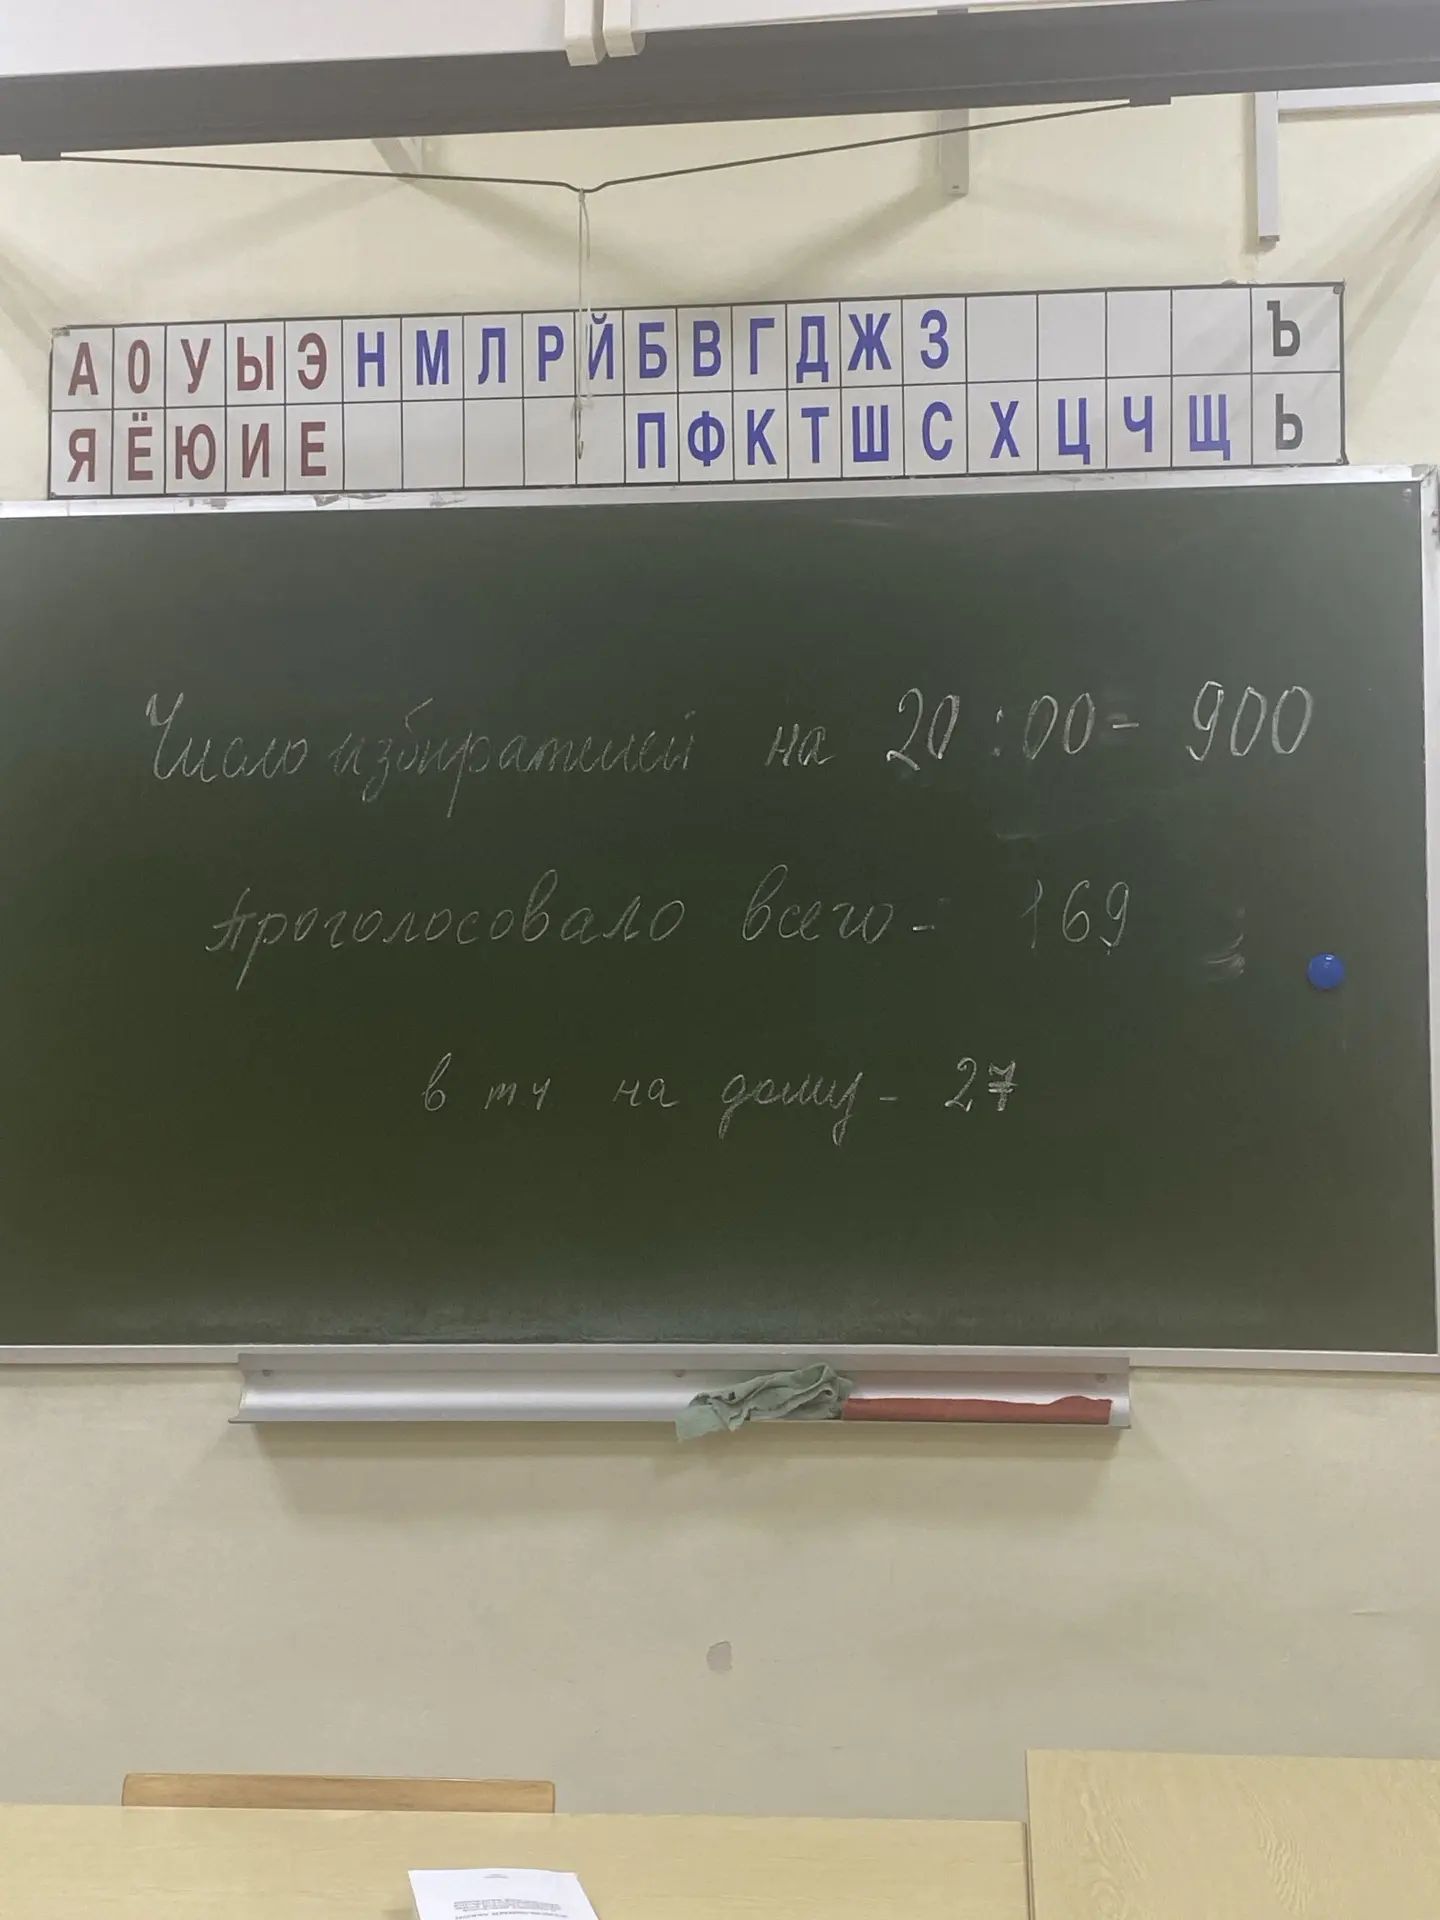 А О У Ы Э Н М Л Р Й Б В Г Д Ж З Ъ
Я Ё Ю И Е П Ф К Т Ш С Х Ц Ч Щ Ь
Число избирателей на 20:00 - 900
Проголосовало всего - 169
в т ч на дому - 27